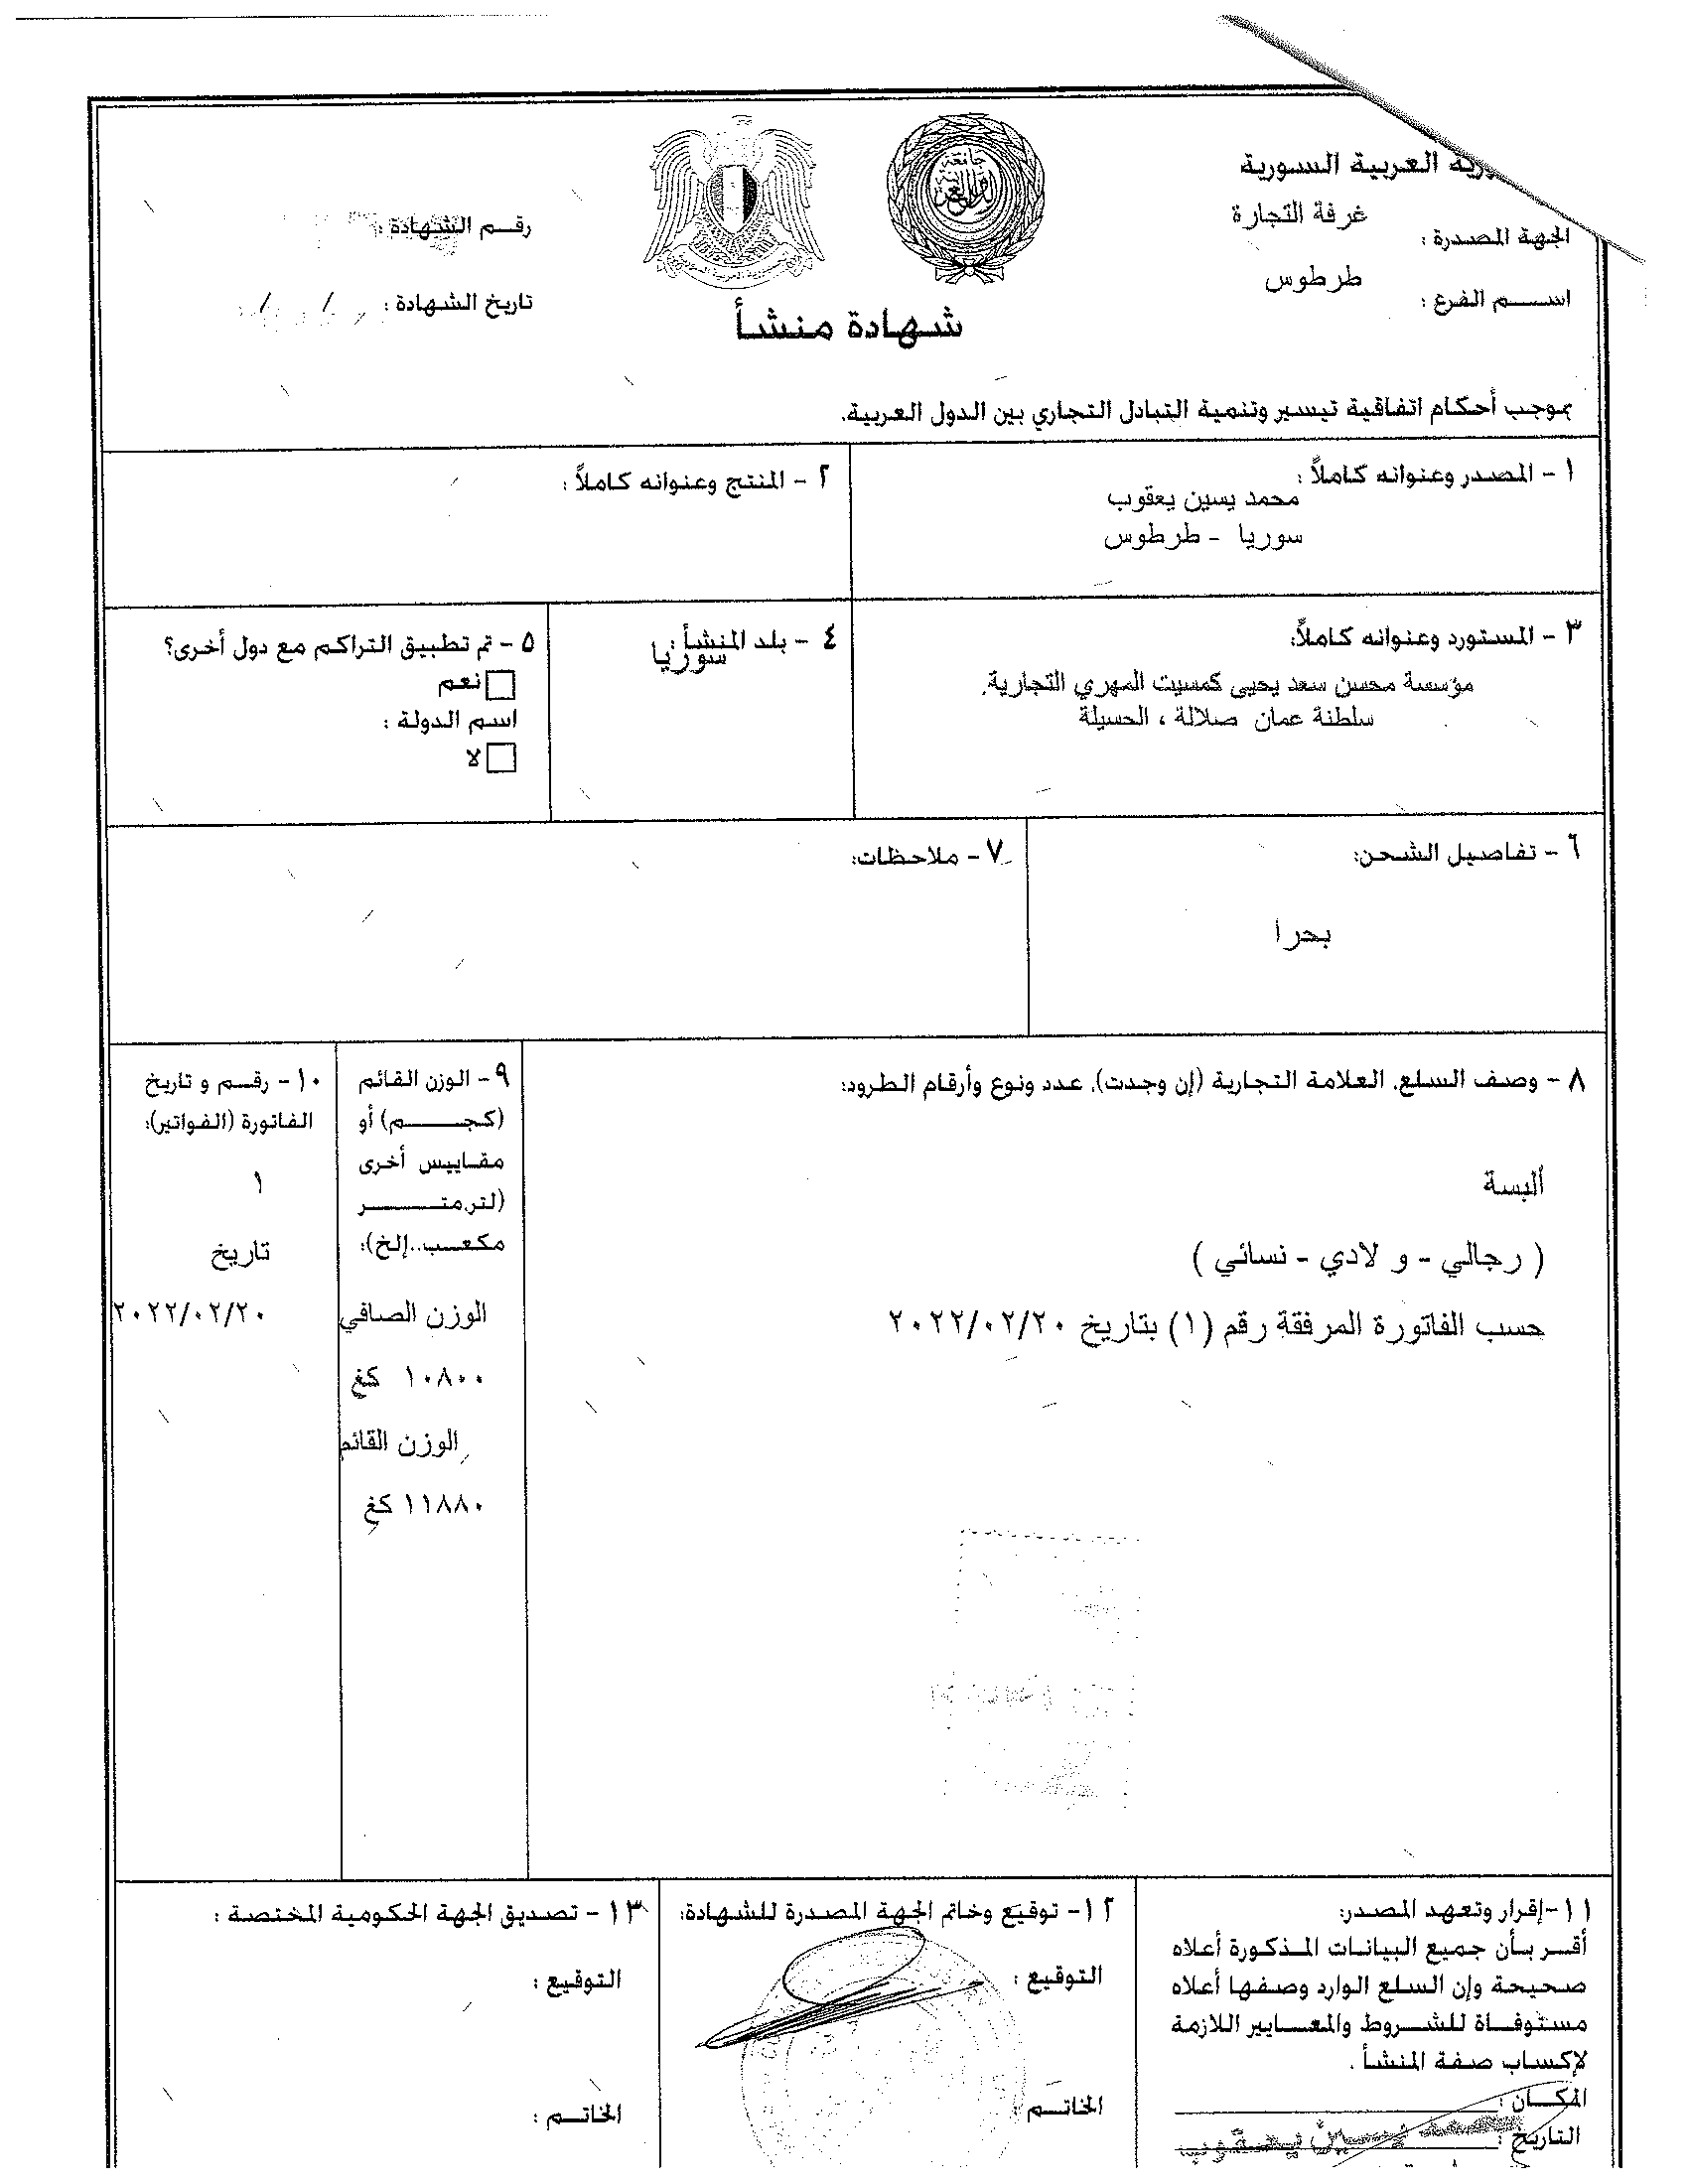 العربية السورية
الجهة المصدرة : غرفة التجارة
اسم الفرع : طرطوس
رقم الشهادة :
تاريخ الشهادة : / /
جامعة الدول العربية
شهادة منشأ
بموجب أحكام اتفاقية تيسير وتنمية التبادل التجاري بين الدول العربية.
١ - المصدر وعنوانه كاملاً :
محمد يسين يعقوب
سوريا - طرطوس
٢ - المنتج وعنوانه كاملاً :
٣ - المستورد وعنوانه كاملاً:
مؤسسة محسن سعد يحيى كمسيت المهري التجارية.
سلطنة عمان صلالة ، الحسيلة
٤ - بلد المنشأ :
سوريا
٥ - تم تطبيق التراكم مع دول أخرى؟
نعم
اسم الدولة :
لا
٦ - تفاصيل الشحن:
بحرا
٧ - ملاحظات:
٨ - وصف السلع, العلامة التجارية (إن وجدت), عدد ونوع وأرقام الطرود:
ألبسة
( رجالي - و لادي - نسائي )
حسب الفاتورة المرفقة رقم (١) بتاريخ ٢٠٢٢/٠٢/٢٠
٩ - الوزن القائم
(كجم) أو
مقاييس أخرى
(لتر,متر
مكعب..إلخ):
الوزن الصافي
١٠٨٠٠ كغ
الوزن القائم
١١٨٨٠ كغ
١٠ - رقم و تاريخ
الفاتورة (الفواتير):
١
تاريخ
٢٠٢٢/٠٢/٢٠
١١-إقرار وتعهد المصدر:
أقر بأن جميع البيانات المذكورة أعلاه
صحيحة وإن السلع الوارد وصفها أعلاه
مستوفاة للشروط والمعايير اللازمة
لإكساب صفة المنشأ .
المكان :
التاريخ :
محمد يسين يعقوب
١٢- توقيع وخاتم الجهة المصدرة للشهادة:
التوقيع :
الخاتم :
١٣ - تصديق الجهة الحكومية المختصة :
التوقيع :
الخاتم :